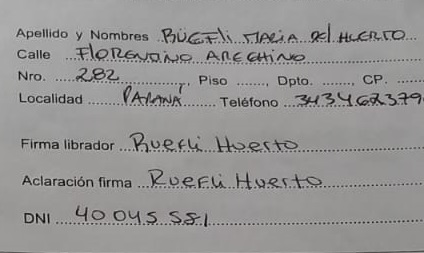 Apellido y Nombres RÜEFLi MARÍA DEL HUERTO
Calle FLORENTINO ARECHINO
Nro. 282, Piso ......, Dpto. ......, CP. ......
Localidad PARANÁ Teléfono 343462379
Firma librador Ruefli Huerto
Aclaración firma Ruefli Huerto
DNI 40 045 581